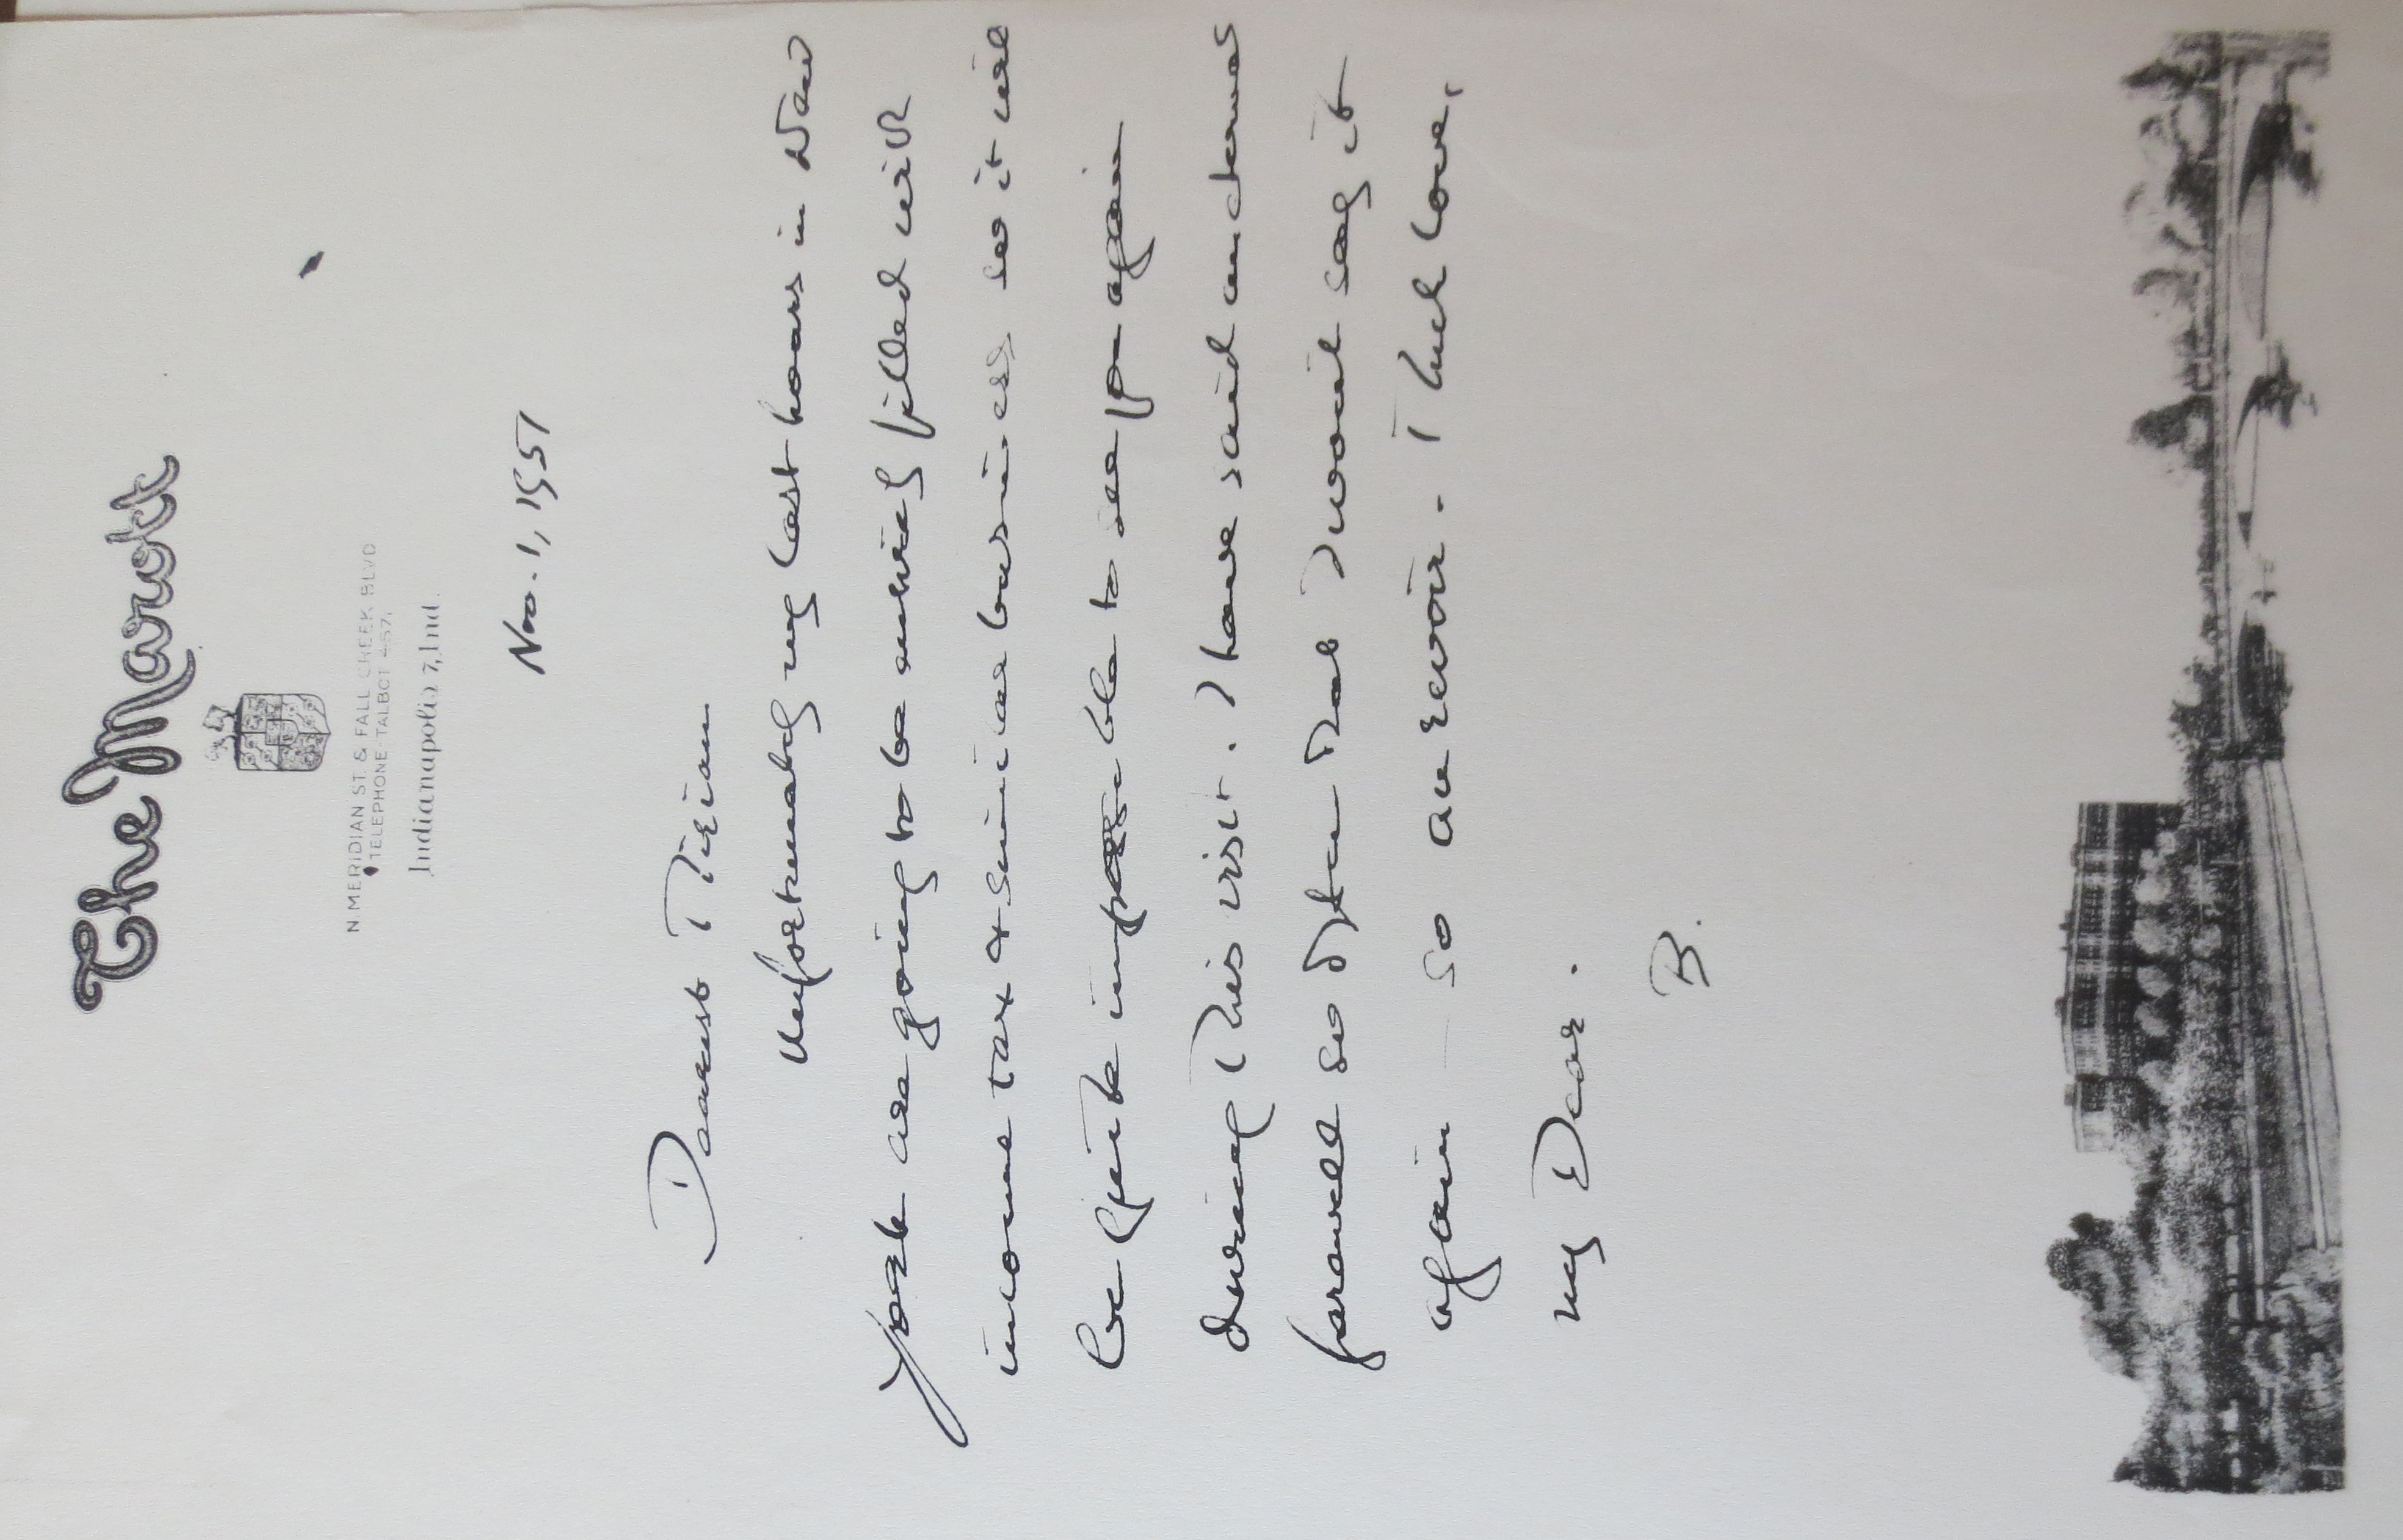 The Marott
N. MERIDIAN ST. & FALL CREEK BLVD
TELEPHONE TALBOT 457
Indianapolis 7, Ind.
Nov. 1, 1951
Dearest
Unfortunately my last hours in New
York are going to be entirely filled with
income tax & similar business so it will
be quite impossible to see you again
during this visit. I have said
farewell so often that I wont say it
again – so au revoir. Much love,
my Dear.
B.